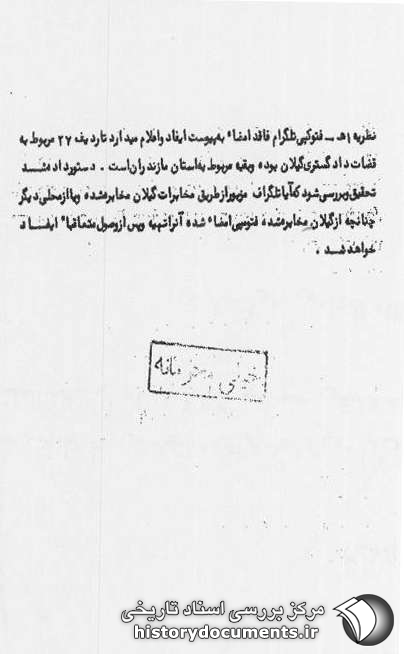 نظریه ۱ هـ ـ فتوکپی تلگرام فاقد امضاء به پیوست ایفاد واعلام میدارد تاردیف ۲۷ مربوط به
قضات دادگستری گیلان بوده وبقیه مربوط به استان مازندران است . دستور داده شد
تحقیق وبررسی شود که آیا تلگراف مزبور از طریق مخابرات گیلان مخابره شده ویا از محلی دیگر
چنانچه از گیلان مخابره شده فتوکپی امضاء شده آنرا تهیه وپس از وصول متعاقباً ایفاد
خواهد شد .
خیلی محرمانه
مرکز بررسی اسناد تاریخی
historydocuments.ir